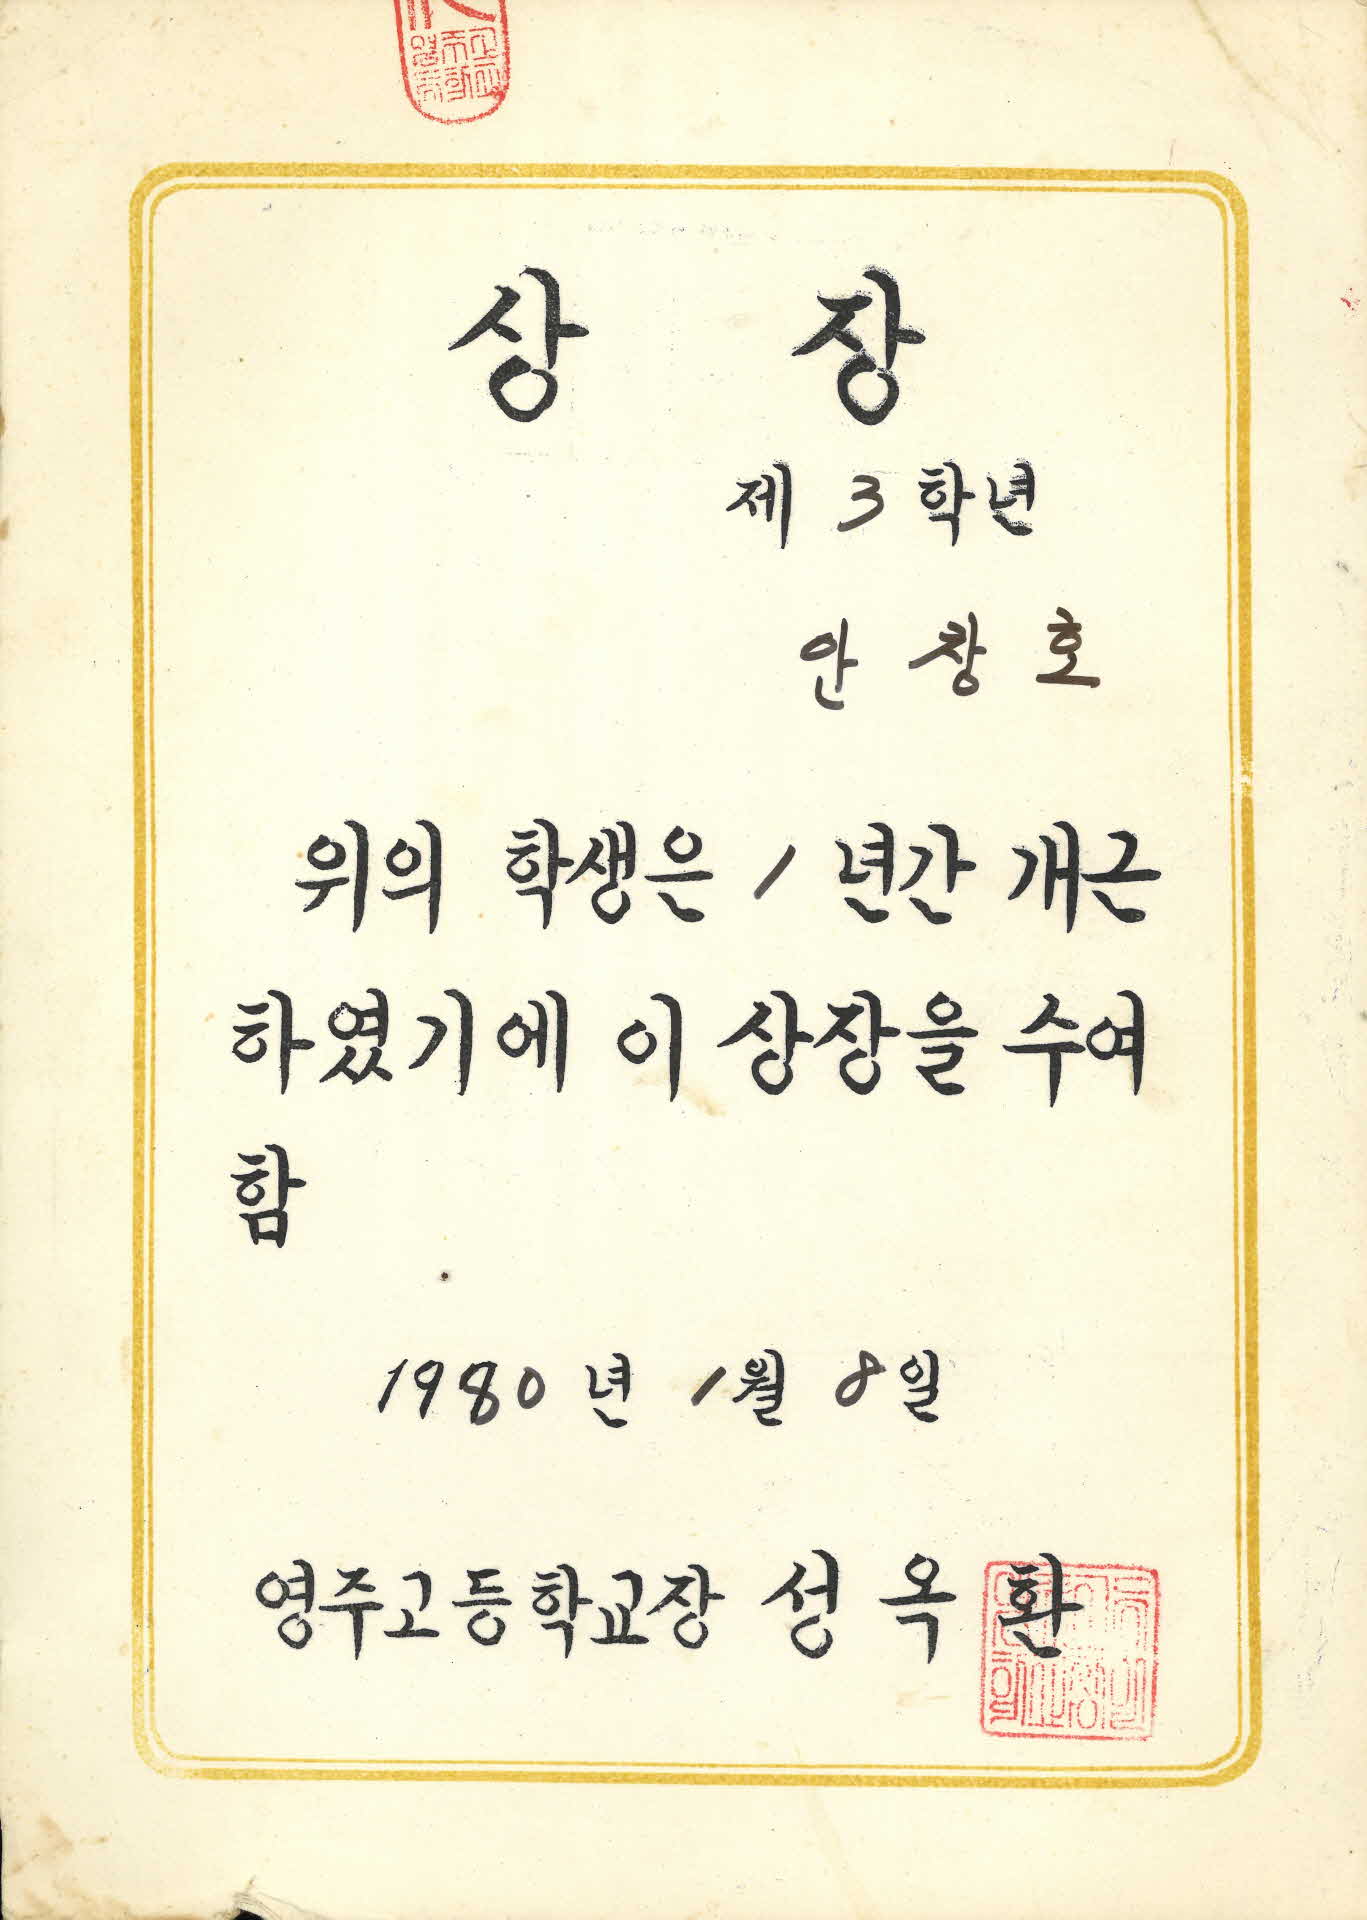 상 장
제 3 학년
안 창 호
위의 학생은 1 년간 개근
하였기에 이 상장을 수여
함
1980 년 1월 8일
영주고등학교장 성 옥 환